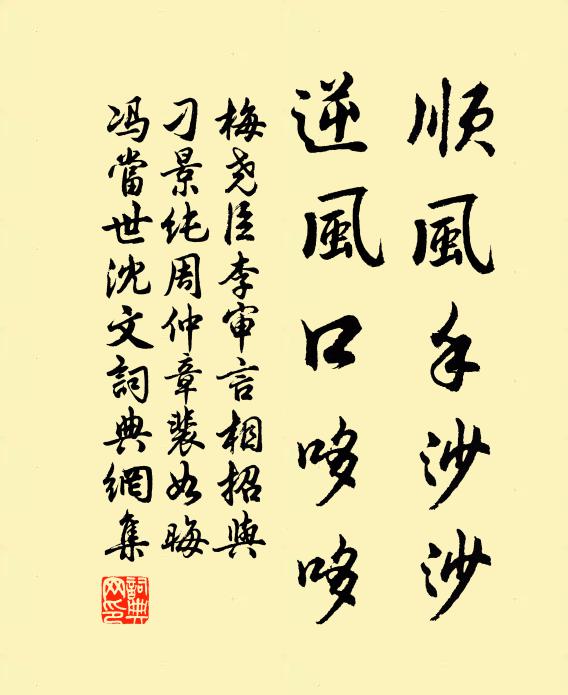 順風手沙沙
逆風口哆哆
梅堯臣李審言相招與
刁景纯周仲章裴如晦
冯當世沈文詞典網集
詞典
网印